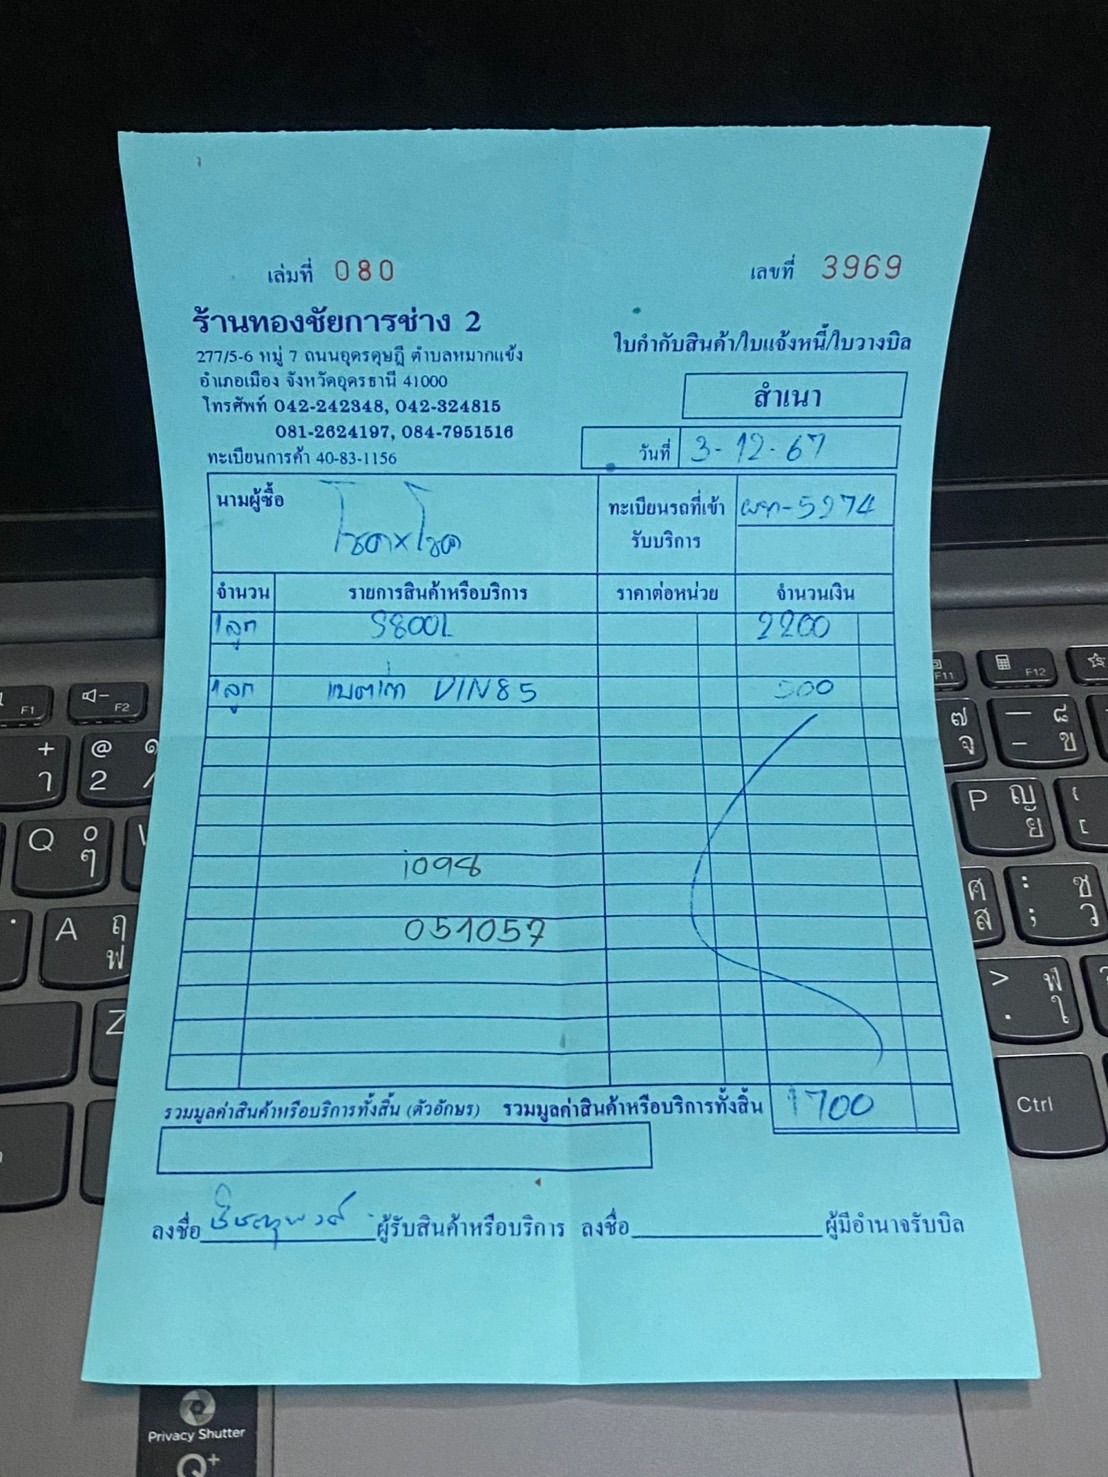 เล่มที่ 080
เลขที่ 3969
ร้านทองชัยการช่าง 2
277/5-6 หมู่ 7 ถนนอุดรดุษฎี ตำบลหมากแข้ง
อำเภอเมือง จังหวัดอุดรธานี 41000
โทรศัพท์ 042-242348, 042-324815
081-2624197, 084-7951516
ทะเบียนการค้า 40-83-1156
ใบกำกับสินค้า/ใบแจ้งหนี้/ใบวางบิล
สำเนา
วันที่ 3-12-67
นามผู้ซื้อ โชค×โชค
ทะเบียนรถที่เข้ารับบริการ
-5274
จำนวน รายการสินค้าหรือบริการ ราคาต่อหน่วย จำนวนเงิน
1ลูก S800L 2200
1ลูก DIN85 500
i098
051057
รวมมูลค่าสินค้าหรือบริการทั้งสิ้น (ตัวอักษร) รวมมูลค่าสินค้าหรือบริการทั้งสิ้น 1700
ลงชื่อ ผู้รับสินค้าหรือบริการ ลงชื่อ ผู้มีอำนาจรับบิล
F1
F2
F11
F12
+
@
2
Q
A
Z
P
Ctrl
Privacy Shutter